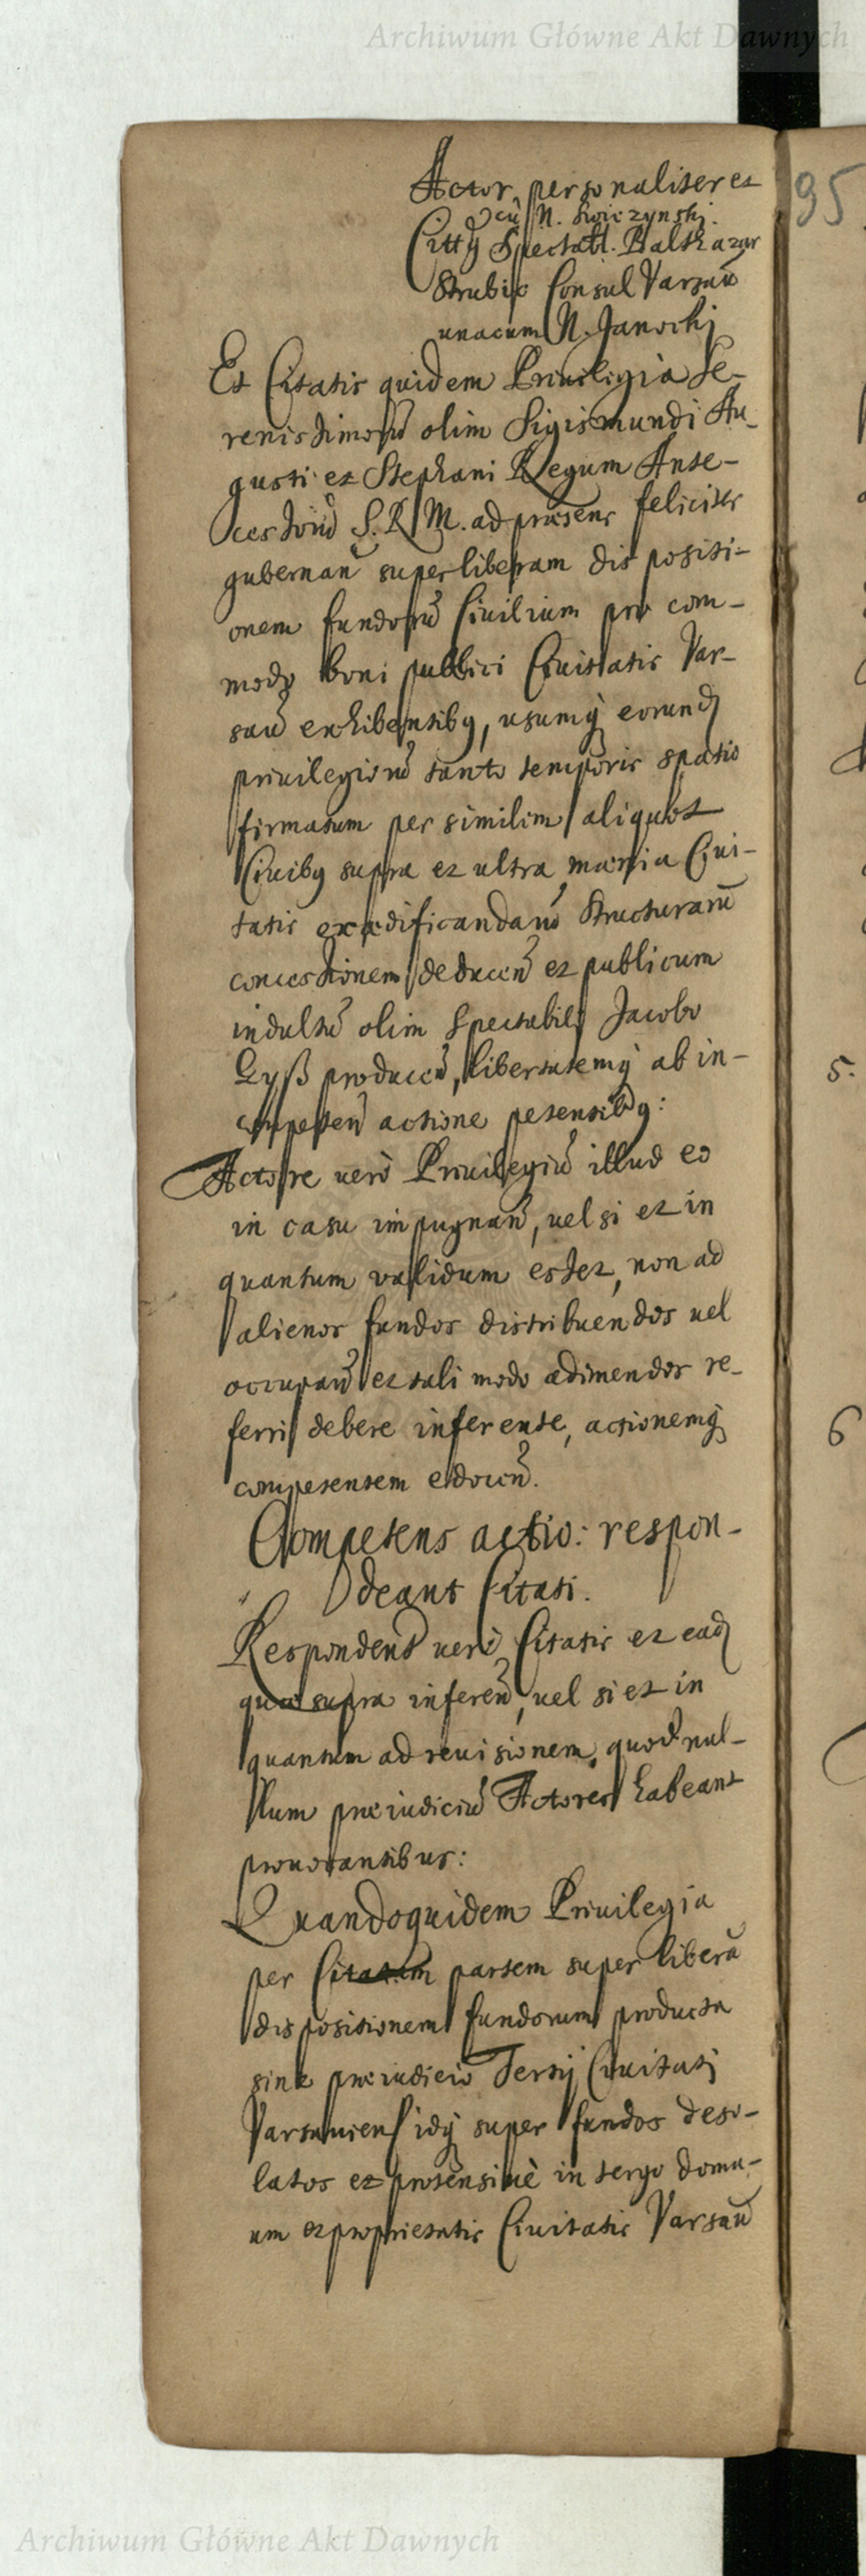 Archiwum Główne Akt Dawnych
Actor personaliter et
cũ N. Swiczynskj.
Citty Spectabl. Balthazar
Strubic Consul Varsaũ
unacum N. Janockj
95
Et Citatis quidem Priuilegia Se-
renissimorũ olim Sigismundi Au-
gusti et Stephani Regum Ante-
cessorũ S. R. M. ad præsens feliciter
gubernañ super liberam dispositi-
onem fundorũ Ciuilium pro com-
modo boni publici Ciuitatis Var-
sau exhibentibq, usumq eorund
priuilegiorũ tanto temporis spatio
firmatum per similem aliquot
Ciuibq supra et ultra mænia Ciui-
tatis exædificandarũ structurarũ
concessionem deducen et publicum
indultũ olim Spectabili Jacobo
Gyß producen, libertatemq ab in-
competen actione petentibq:
Actore uerò Priuilegiũ illud eo
in casu impugnañ, uel si et in
quantum validum esset, non ad
alienos fundos distribuendos uel
occupañ et tali modo adimendos re-
ferri debere inferente, actionemq
competentem edocen.
Competens actio: respon-
deant Citati.
Respondend uerò Citatis et ead
quæ supra inferen, uel si et in
quantum ad reuisionem, quod nul-
lum præiudiciũ Actores habeant
prouocantibus:
Quandoquidem Priuilegia
per Citatam partem super liberã
dispositionem fundorum producta
sine præiudicio Tertij Ciuitatj
Varsauiens idq super fundos deso-
latos et protensiuè in tergo domu-
um et proprietatis Ciuitatis Varsaũ
5.
6
Archiwum Główne Akt Dawnych